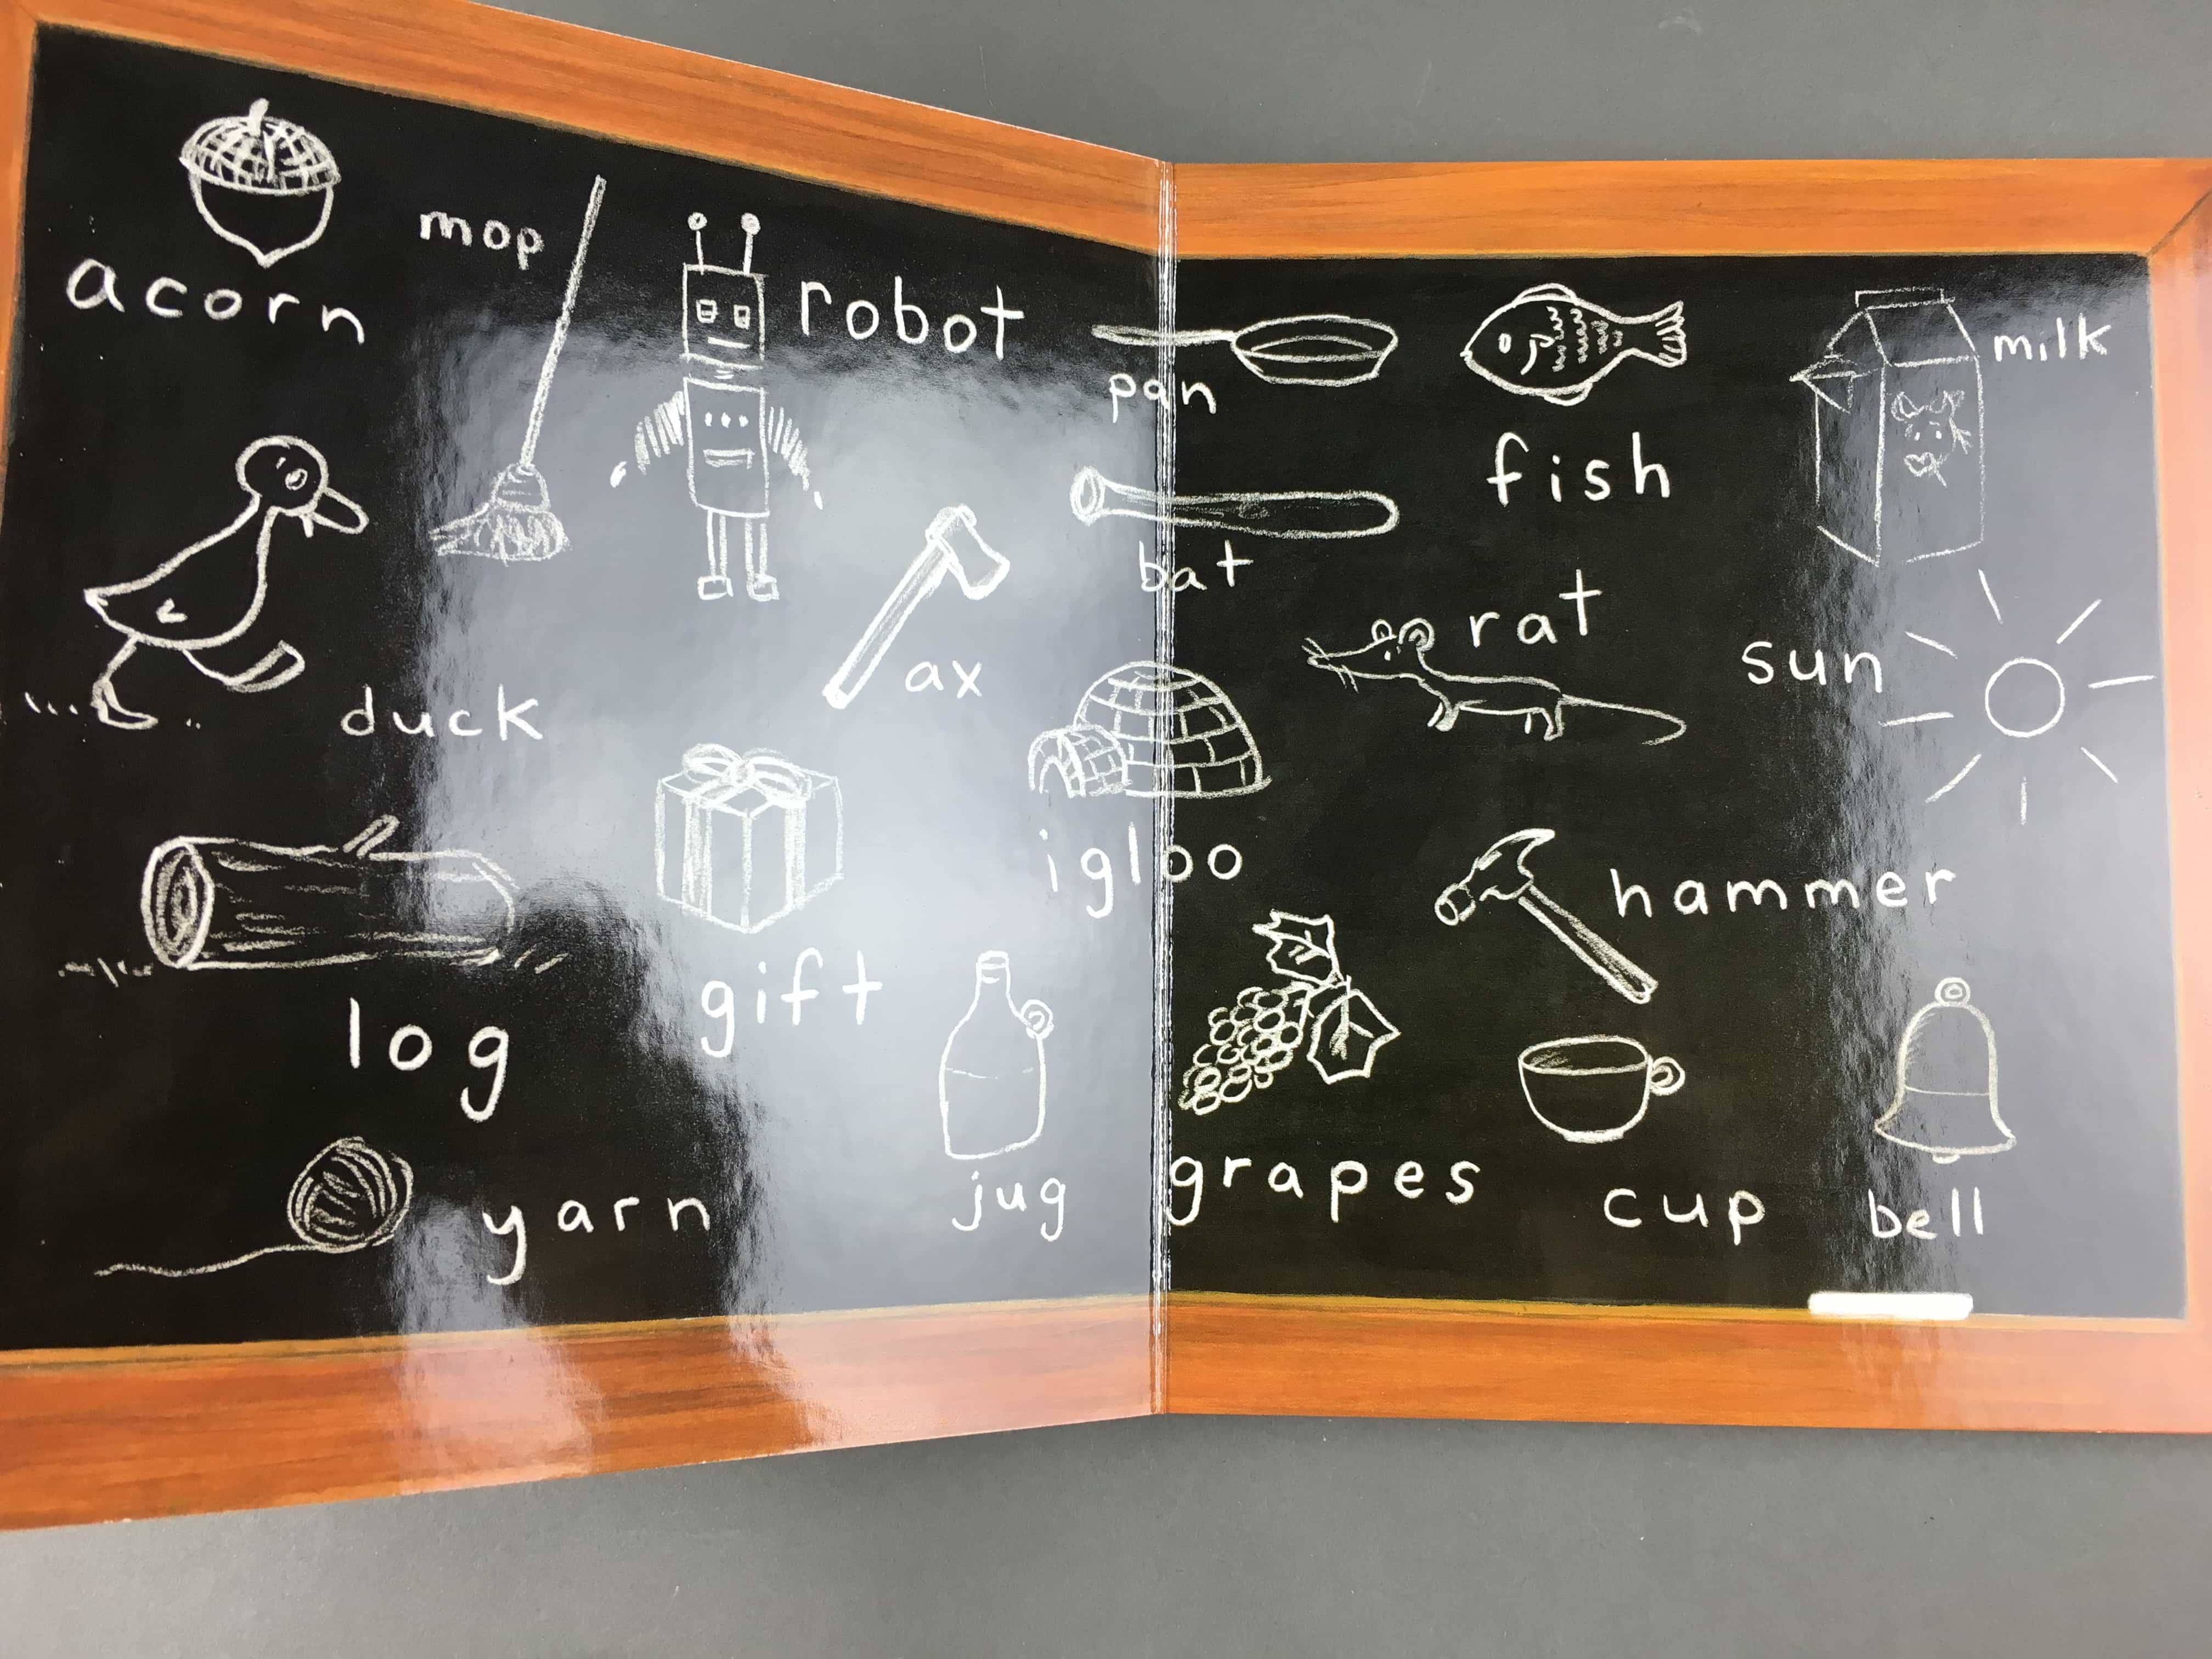 acorn
mop
robot
duck
ax
log
gift
yarn
jug
pan
fish
milk
bat
rat
sun
igloo
hammer
grapes
cup
bell